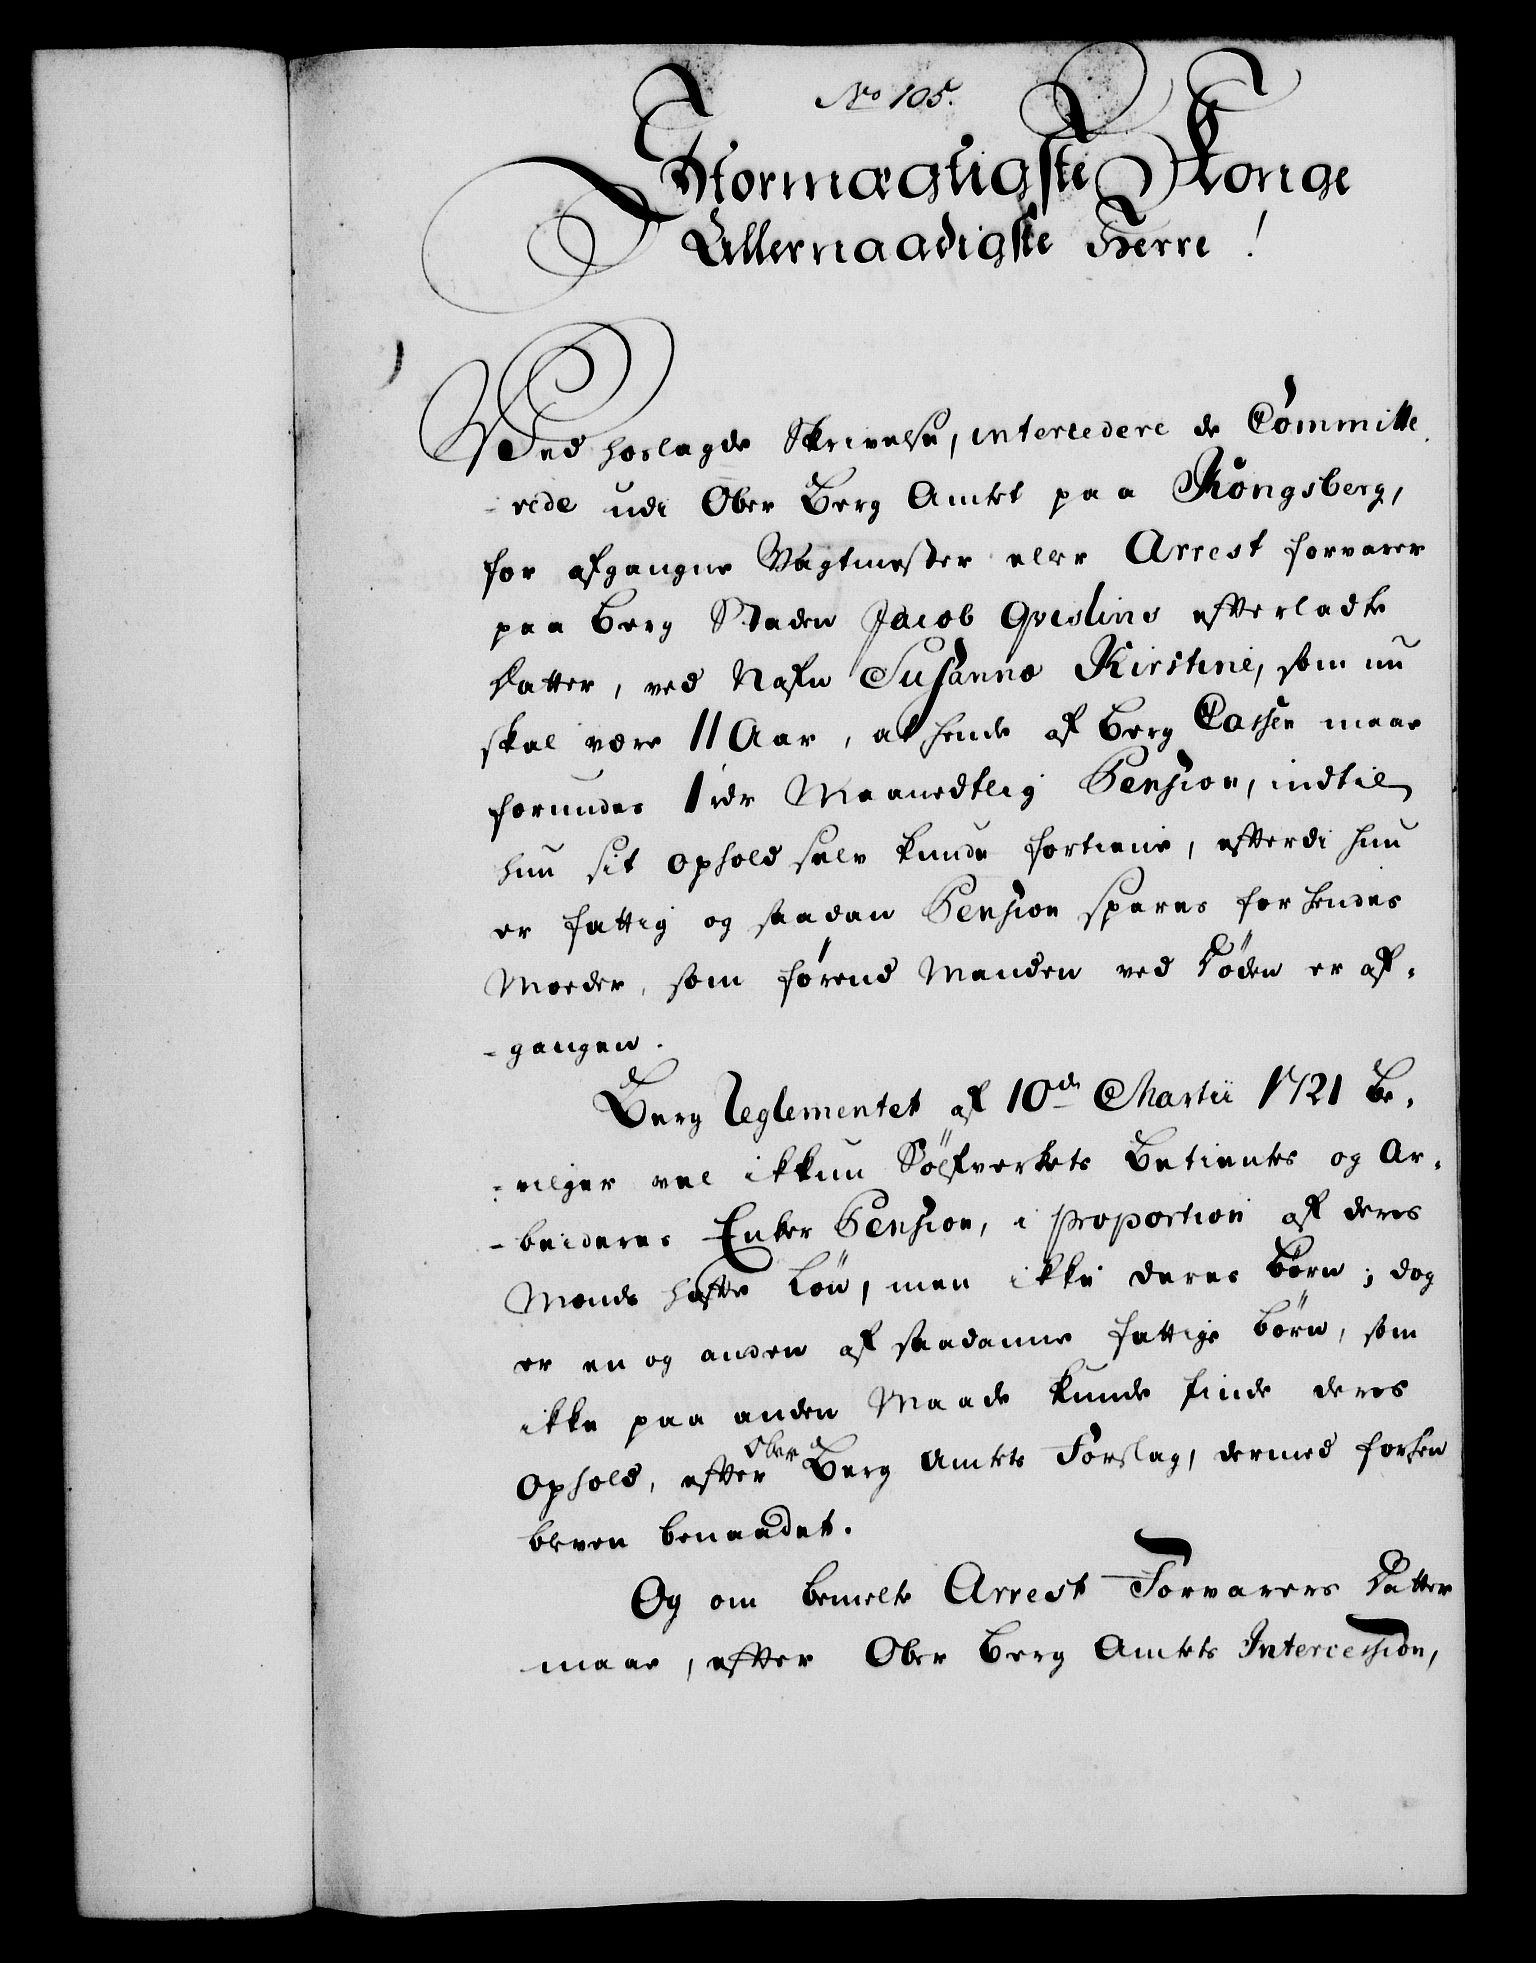 No 105.
Stormægtigste Konge
Allernaadigste Herre!
Ved hoslagde Skrivelse, intercedere de Committe
-rede udi Ober Berg Amtet paa Kongsberg,
for afgangne Vagtmester eller Arrest forvarer
paa Berg Staden Jacob Qvislins efterladte
Datter, ved Nafn Susanna Kirstine, som nu
skal være 11 Aar, at hende af Berg Cassen maae
forundes 1 rdr Maanedtlig Pension, indtil
hun sit ophold selv kunde fortiene, efterdi hun
er fattig og saadan Pension spares for hendes
Moeder, som førend Manden ved Døden er af-
-gangen.
Berg Reglementet af 10de Martii 1721 Be-
-vilger vel ikkun Sølfverkets Betientes og Ar-
-beideres Enker Pension, i proportion af deres
Mænds hafte Løn, men ikke deres Børn; dog
er en og anden af saadanne fattige børn, som
ikke paa anden Maade kunde finde deres
Ophold, efter Ober Berg Amtets Forslag, dermed forhen
bleven benaadet.
Og om bemelte Arrest Forvarers Datter
maae, efter Ober Berg Amtets Intercession,